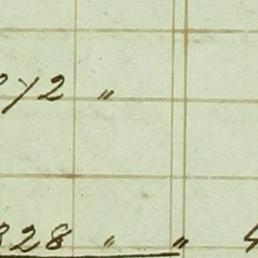 72 "
328 " " 4